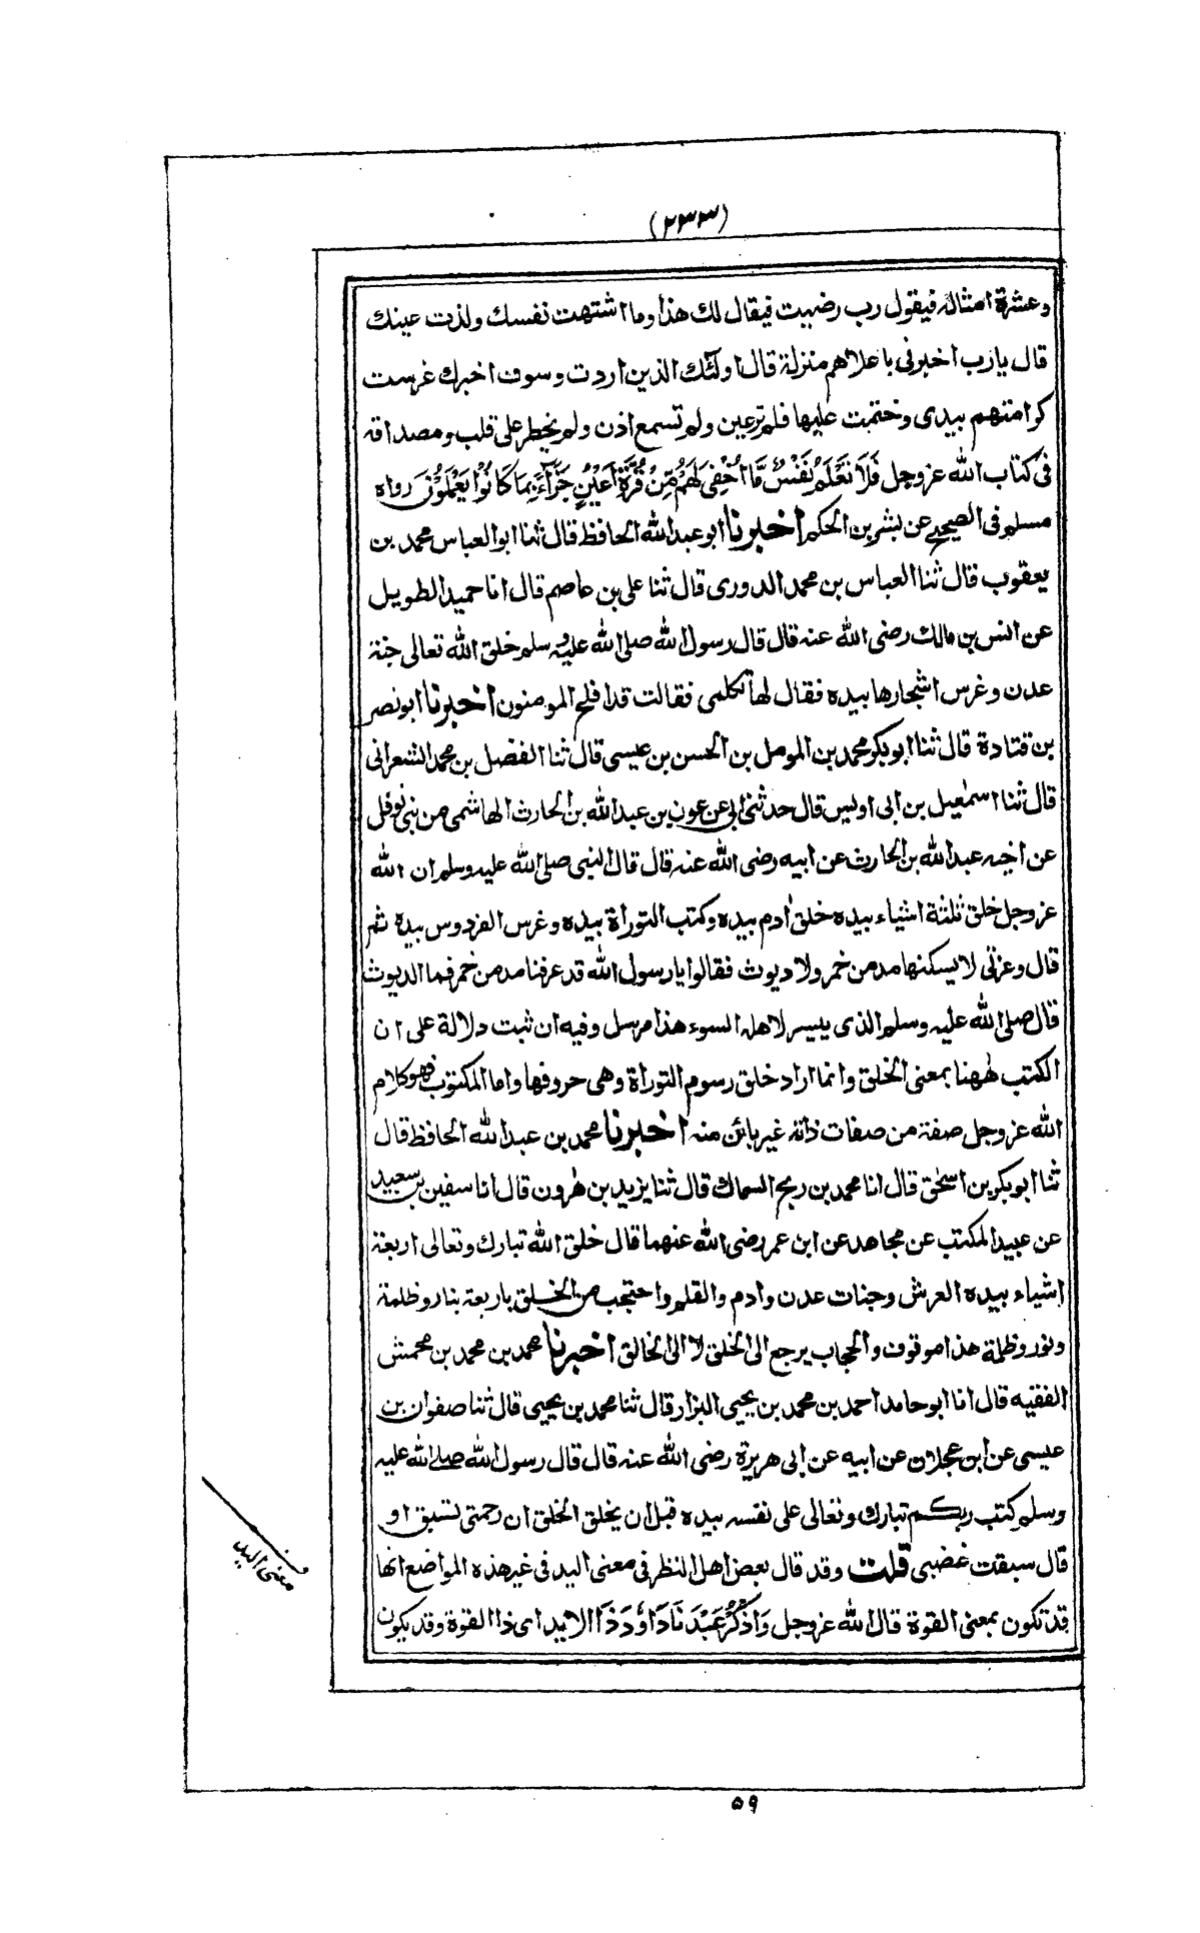 (٢٣٣)
وعشرة امثاله فيقول رب رضيت فيقال لك هذا وما اشتهت نفسك ولذت عينك
قال يارب اخبرنى باعلاهم منزلة قال اولئك الذين اردت وسوف اخبرك غرست
كرامتهم بيدى وختمت عليها فلم ترعين ولم تسمع اذن ولم يخطر على قلب ومصداقه
فى كتاب الله عزوجل فَلَا تَعْلَمُ نَفْسٌ مَّا اُخْفِىَ لَهُمْ مِّنْ قُرَّةِ اَعْيُنٍ جَزَاءً بِمَا كَانُوْا يَعْمَلُوْنَ رواه
مسلم فى الصحيح عن بشر بن الحكم اخبرنا ابو عبد الله الحافظ قال ثنا ابو العباس محمد بن
يعقوب قال ثنا العباس بن محمد الدورى قال ثنا على بن عاصم قال انا حميد الطويل
عن انس بن مالك رضى الله عنه قال قال رسول الله صلى الله عليه وسلم خلق الله تعالى جنة
عدن وغرس اشجارها بيده فقال لها تكلمى فقالت قد افلح المومنون اخبرنا ابو نصر
بن قتادة قال ثنا ابو بكر محمد بن المومل بن الحسن بن عيسى قال ثنا الفضل بن محمد الشعرانى
قال ثنا اسمٰعيل بن ابى اويس قال حدثنى ابى عن عون بن عبد الله بن الحارث الهاشمى من بنى نوفل
عن اخيه عبد الله بن الحارث عن ابيه رضى الله عنه قال قال النبى صلى الله عليه وسلم ان الله
عزوجل خلق ثلثة اشياء بيده خلق اٰدم بيده وكتب التوراة بيده وغرس الفردوس بيده ثم
قال وعزتى لا يسكنها مدمن خمر ولا ديوث فقالوا يا رسول الله قد عرفنا مدمن خمر فما الديوث
قال صلى الله عليه وسلم الذى ييسر لاهله السوء هذا مرسل وفيه ان ثبت دلالة على ان
الكتب هٰهنا بمعنى الخلق وانما اراد خلق رسوم التوراة وهى حروفها واما المكتوب فهو كلام
الله عزوجل صفة من صفات ذاته غير بائن منه اخبرنا محمد بن عبد الله الحافظ قال
ثنا ابو بكر بن اسحٰق قال انا محمد بن ربح السماك قال ثنا يزيد بن هٰرون قال انا سفين بن سعيد
عن عبيد المكتب عن مجاهد عن ابن عمر رضى الله عنهما قال خلق الله تبارك وتعالى اربعة
اشياء بيده العرش وجنات عدن وادم والقلم واحتجب من الخلق باربعة بنار وظلمة
ونور وظلمة هذا موقوف والحجاب يرجع الى الخلق لا الى الخالق اخبرنا محمد بن محمد بن محمش
الفقيه قال انا ابو حامد احمد بن محمد بن يحيى البزار قال ثنا محمد بن يحيى قال ثنا صفوان بن
عيسى عن ابن عجلان عن ابيه عن ابى هريرة رضى الله عنه قال قال رسول الله صلى الله عليه
وسلم كتب ربكم تبارك وتعالى على نفسه بيده قبل ان يخلق الخلق ان رحمتى تسبق او
قال سبقت غضبى قلت وقد قال بعض اهل النظر فى معنى اليد فى غير هذه المواضع انها
قد تكون بمعنى القوة قال الله عزوجل وَاذْكُرْ عَبْدَنَا دَاوُدَ ذَا الايد اى ذا القوة وقد يكون
معنى اليد
٥٩